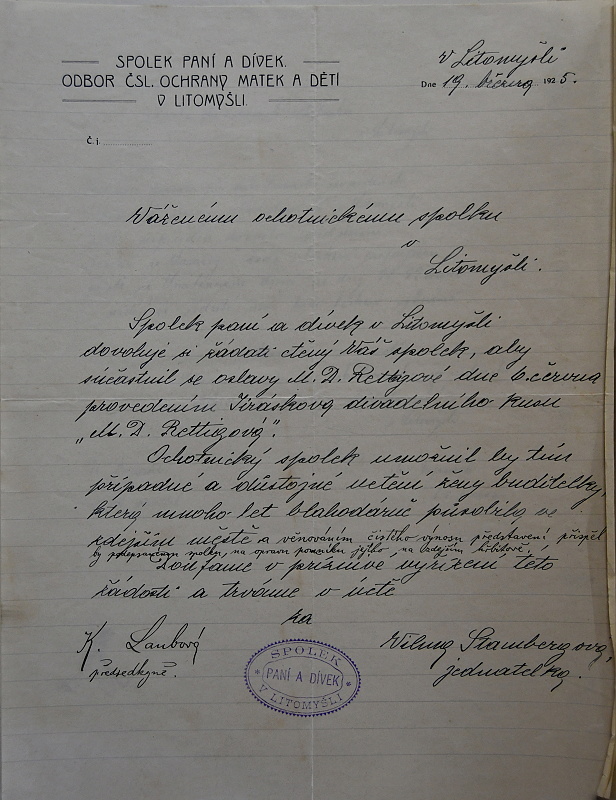 SPOLEK PANÍ A DÍVEK.
ODBOR ČSL. OCHRANY MATEK A DĚTÍ
V LITOMYŠLI.
V Litomyšli
Dne 19. března 1925.
Č.j.
Váženému ochotnickému spolku
v
Litomyšli.
Spolek paní a dívek v Litomyšli
dovoluje si žádati ctěný Váš spolek, aby
súčastnil se oslavy M. D. Rettigové dne 6. června
provedením Jiráskova divadelního kusu
„M. D. Rettigová".
Ochotnický spolek umožnil by tím
případné a důstojné uctění ženy buditelky,
která mnoho let blahodárně působila ve
zdejším městě a věnováním čistého výnosu představení přispěl
by spolku, na opravu pomníku jejího na zdejším hřbitově.
Doufáme v příznivé vyřízení této
žádosti a trváme v úctě
za
K. Laubová
předsedkyně.
Vilma Stambergová,
jednatelka.
SPOLEK
PANÍ A DÍVEK
V LITOMYŠLI